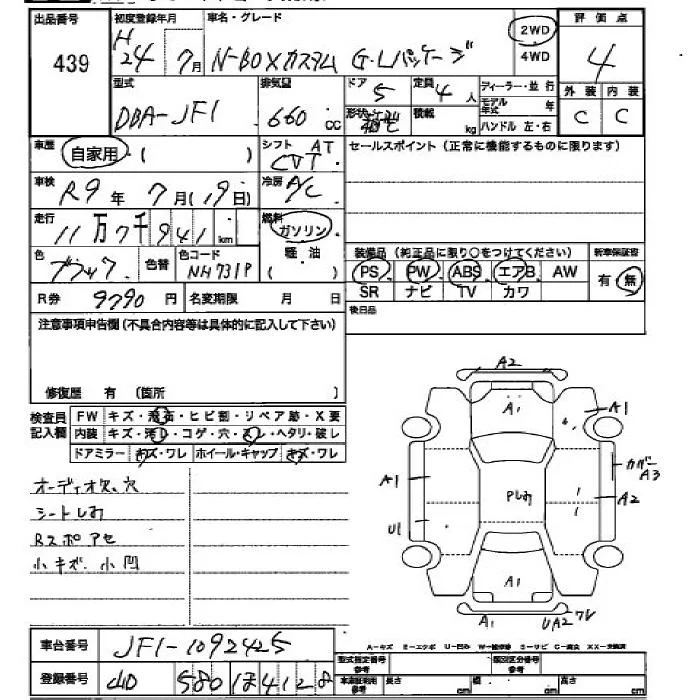 出品番号 439
初度登録年月 H24年7月
車名・グレード N-BOXカスタム G・Lパッケージ
2WD 4WD
評価点 4
外装 内装
C C
型式 DBA-JF1
排気量 660cc
ドア 5 定員 4人
形状 積載 kg
ディーラー・並行
モデル年式 年
ハンドル 左・右
車歴 自家用・( )
シフト AT CVT
セールスポイント(正常に機能するものに限ります)
車検 R9年7月(19日)
冷房 A/C
走行 11万7千941km
燃料 ガソリン 軽油
色 ブラック 色替 色コード NH731P
装備品(純正品に限り○をつけてください)
新車保証書 有・無
PS PW ABS エアB AW
SR ナビ TV カワ
R券 9790円 名変期限 月 日
後日品
注意事項申告欄(不具合内容等は具体的に記入して下さい)
修復歴 有 〔箇所 〕
検査員記入欄
FW キズ・飛石・ヒビ割・リペア跡・X要
内装 キズ・汚レ・コゲ・穴・スレ・ヘタリ・破レ
ドアミラー キズ・ワレ ホイール・キャップ キズ・ワレ
オーディオ欠、穴
シートしみ
Rスポアセ
小キズ.小凹
A2
A1
A1
A1
カバーA3
A2
Pしみ
U1
A1
A1
UA2ワレ
車台番号 JF1-1092425
A-キズ E-エクボ U-凹み W-補修跡 S-サビ C-腐食 XX-交換済
型式指定番号 参考
類別区分番号 参考
登録番号 580 ほ 4128
車庫証明用 参考
長さ cm 幅 cm 高さ cm